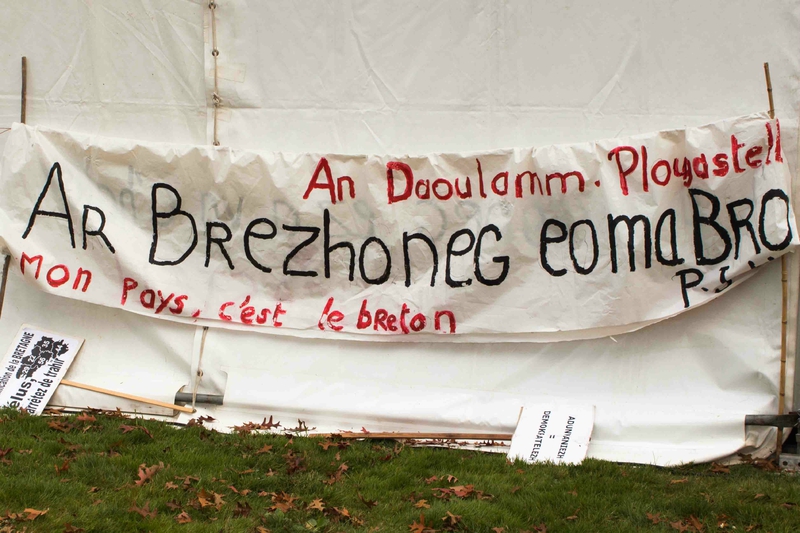 An Daoulamm. Plougastell
AR BRezhoneg eo ma BRO
P.J.
mon pays, c'est le breton
de la BRETAGNE
élus,
arrêtez de trahir
44
ADUNVANIEZH
=
DEMOKRATELEZH